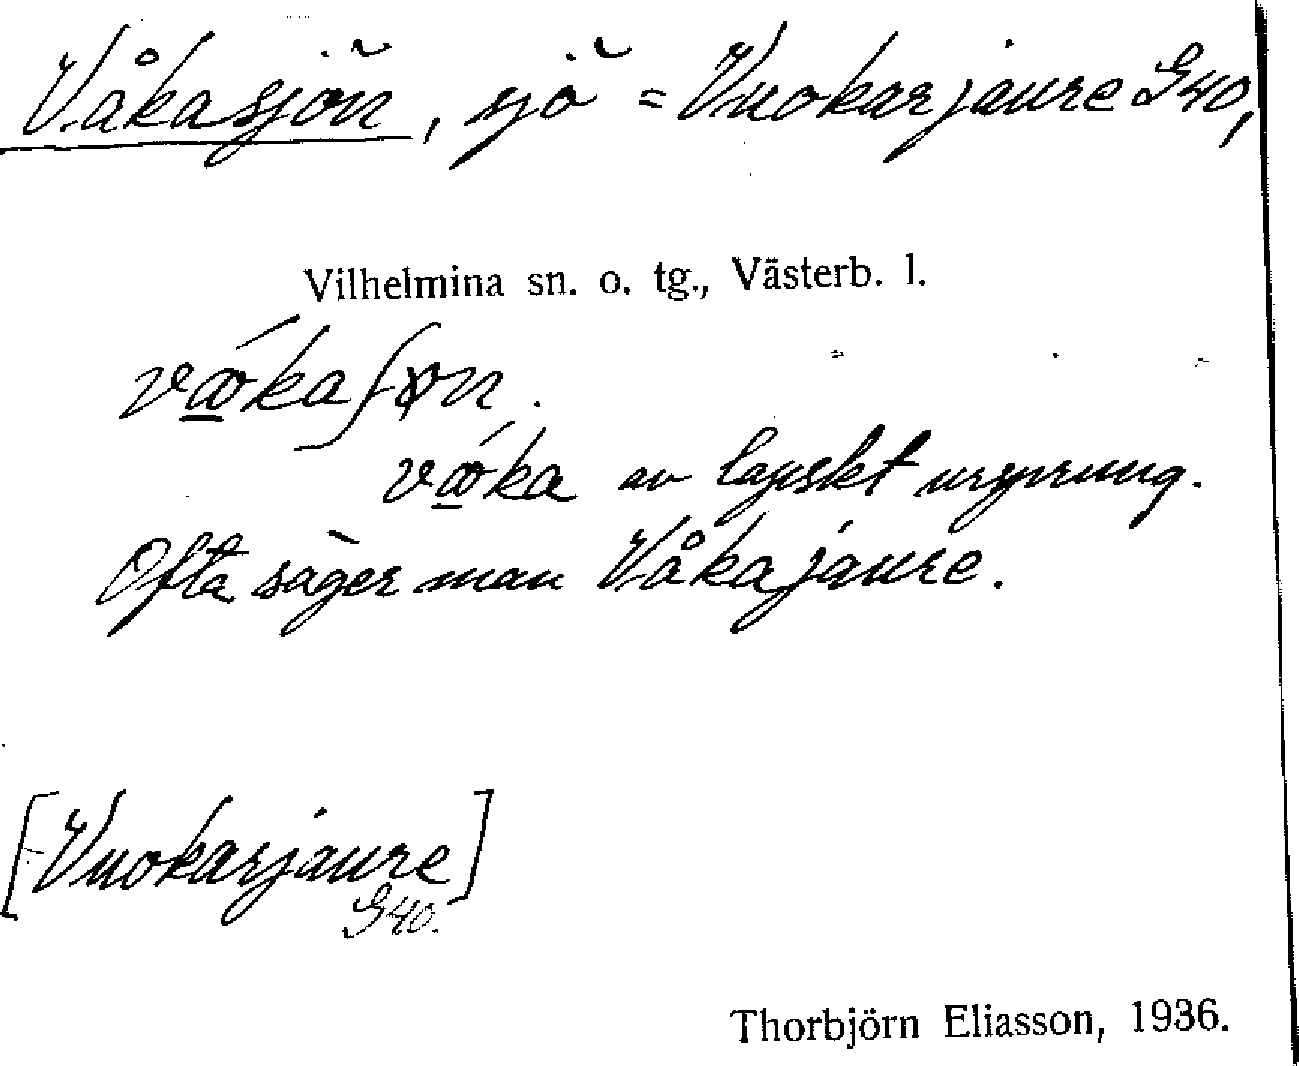 Våkasjön, sjö = Vuokarjaure G40,
Vilhelmina sn. o. tg., Västerb. l.
av lapskt ursprung.
Ofta säger man Våkajaure.
[Vuokarjaure]
G40.
Thorbjörn Eliasson, 1936.